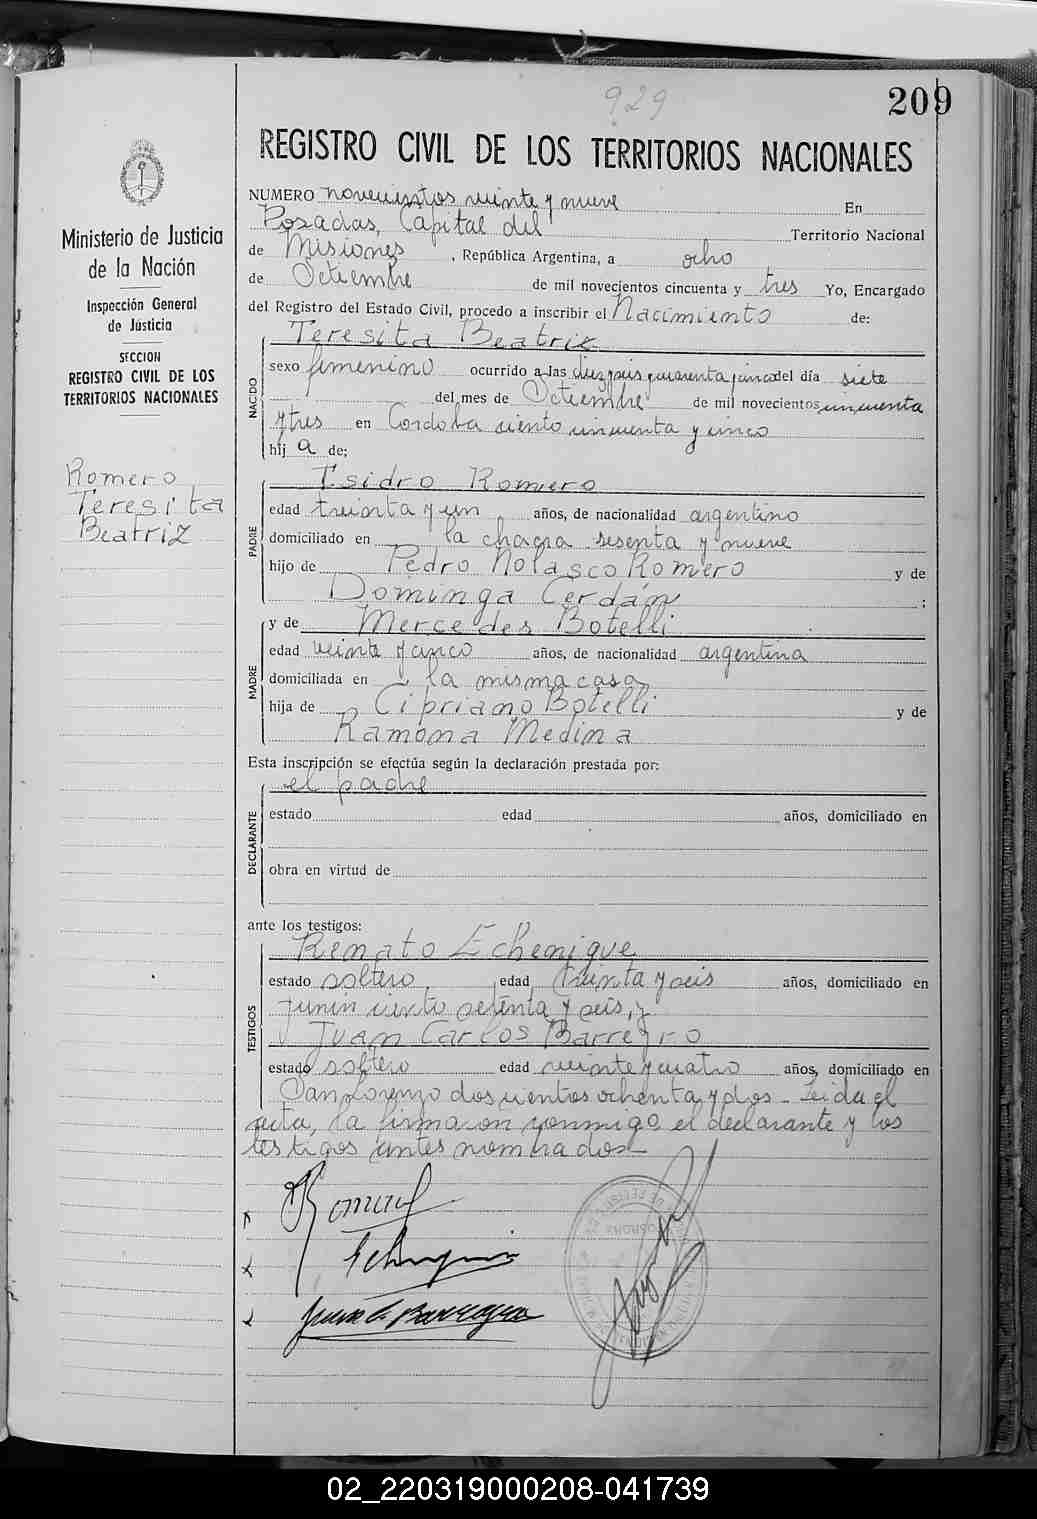 929
209
REGISTRO CIVIL DE LOS TERRITORIOS NACIONALES
Ministerio de Justicia
de la Nación
Inspección General
de Justicia
SECCION
REGISTRO CIVIL DE LOS
TERRITORIOS NACIONALES
Romero
Teresita
Beatriz
NUMERO novecientos veinte y nueve En
Posadas, Capital del Territorio Nacional
de Misiones, República Argentina, a ocho
de Setiembre de mil novecientos cincuenta y tres Yo, Encargado
del Registro del Estado Civil, procedo a inscribir el Nacimiento de:
NACIDO
Teresita Beatriz
sexo femenino ocurrido a las diez y seis y cuarenta y cinco del día siete
del mes de Setiembre de mil novecientos cincuenta
y tres en Cordoba ciento cincuenta y cinco
hij a de:
PADRE
Isidro Romero
edad treinta y un años, de nacionalidad argentino
domiciliado en la chacra sesenta y nueve
hijo de Pedro Nolasco Romero y de
Dominga Cerdán ;
MADRE
y de Mercedes Botelli
edad veinte y cinco años, de nacionalidad argentina
domiciliada en la misma casa
hija de Cipriano Botelli y de
Ramona Medina
Esta inscripción se efectúa según la declaración prestada por:
DECLARANTE
el padre
estado edad años, domiciliado en
obra en virtud de
ante los testigos:
TESTIGOS
Renato Echenique
estado soltero edad treinta y seis años, domiciliado en
Junin ciento setenta y seis, y
Juan Carlos Barreyro
estado soltero edad veinte y cuatro años, domiciliado en
San Lorenzo doscientos ochenta y dos - Leida el
acta, la firmaron conmigo el declarante y los
testigos antes nombrados-
Romero
Echenique
Juan C. Barreyro
02_220319000208-041739